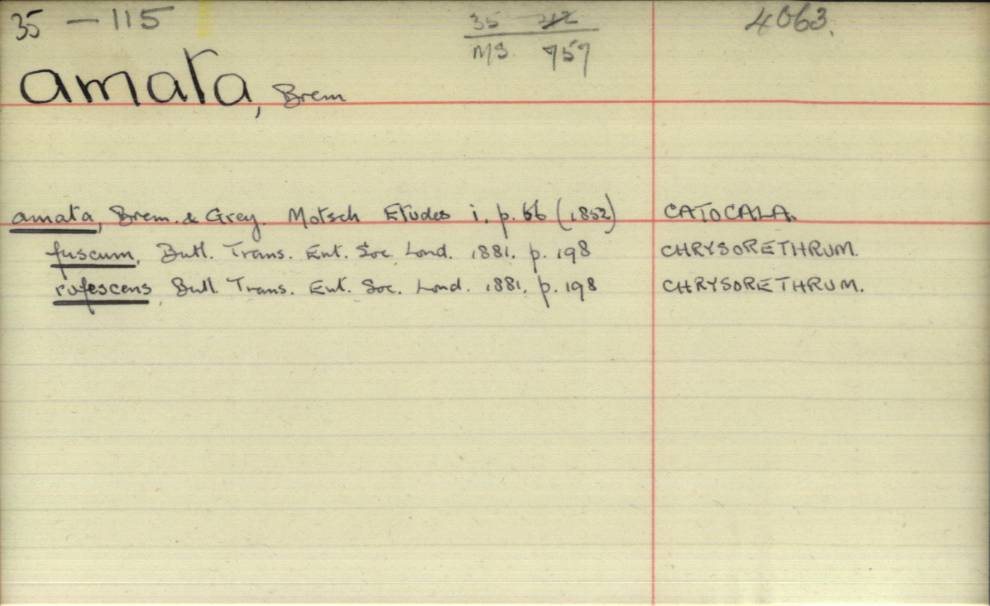 35 — 115 35 212 4063.
MS. 757
amata, Brem
amata, Brem. & Grey. Motsch Etudes i, p. 66 (1852) CATOCALA.
fuscum, Butl. Trans. Ent. Soc. Lond. 1881. p. 198 CHRYSORETHRUM.
rufescens Butl. Trans. Ent. Soc. Lond. 1881. p. 198 CHRYSORETHRUM.